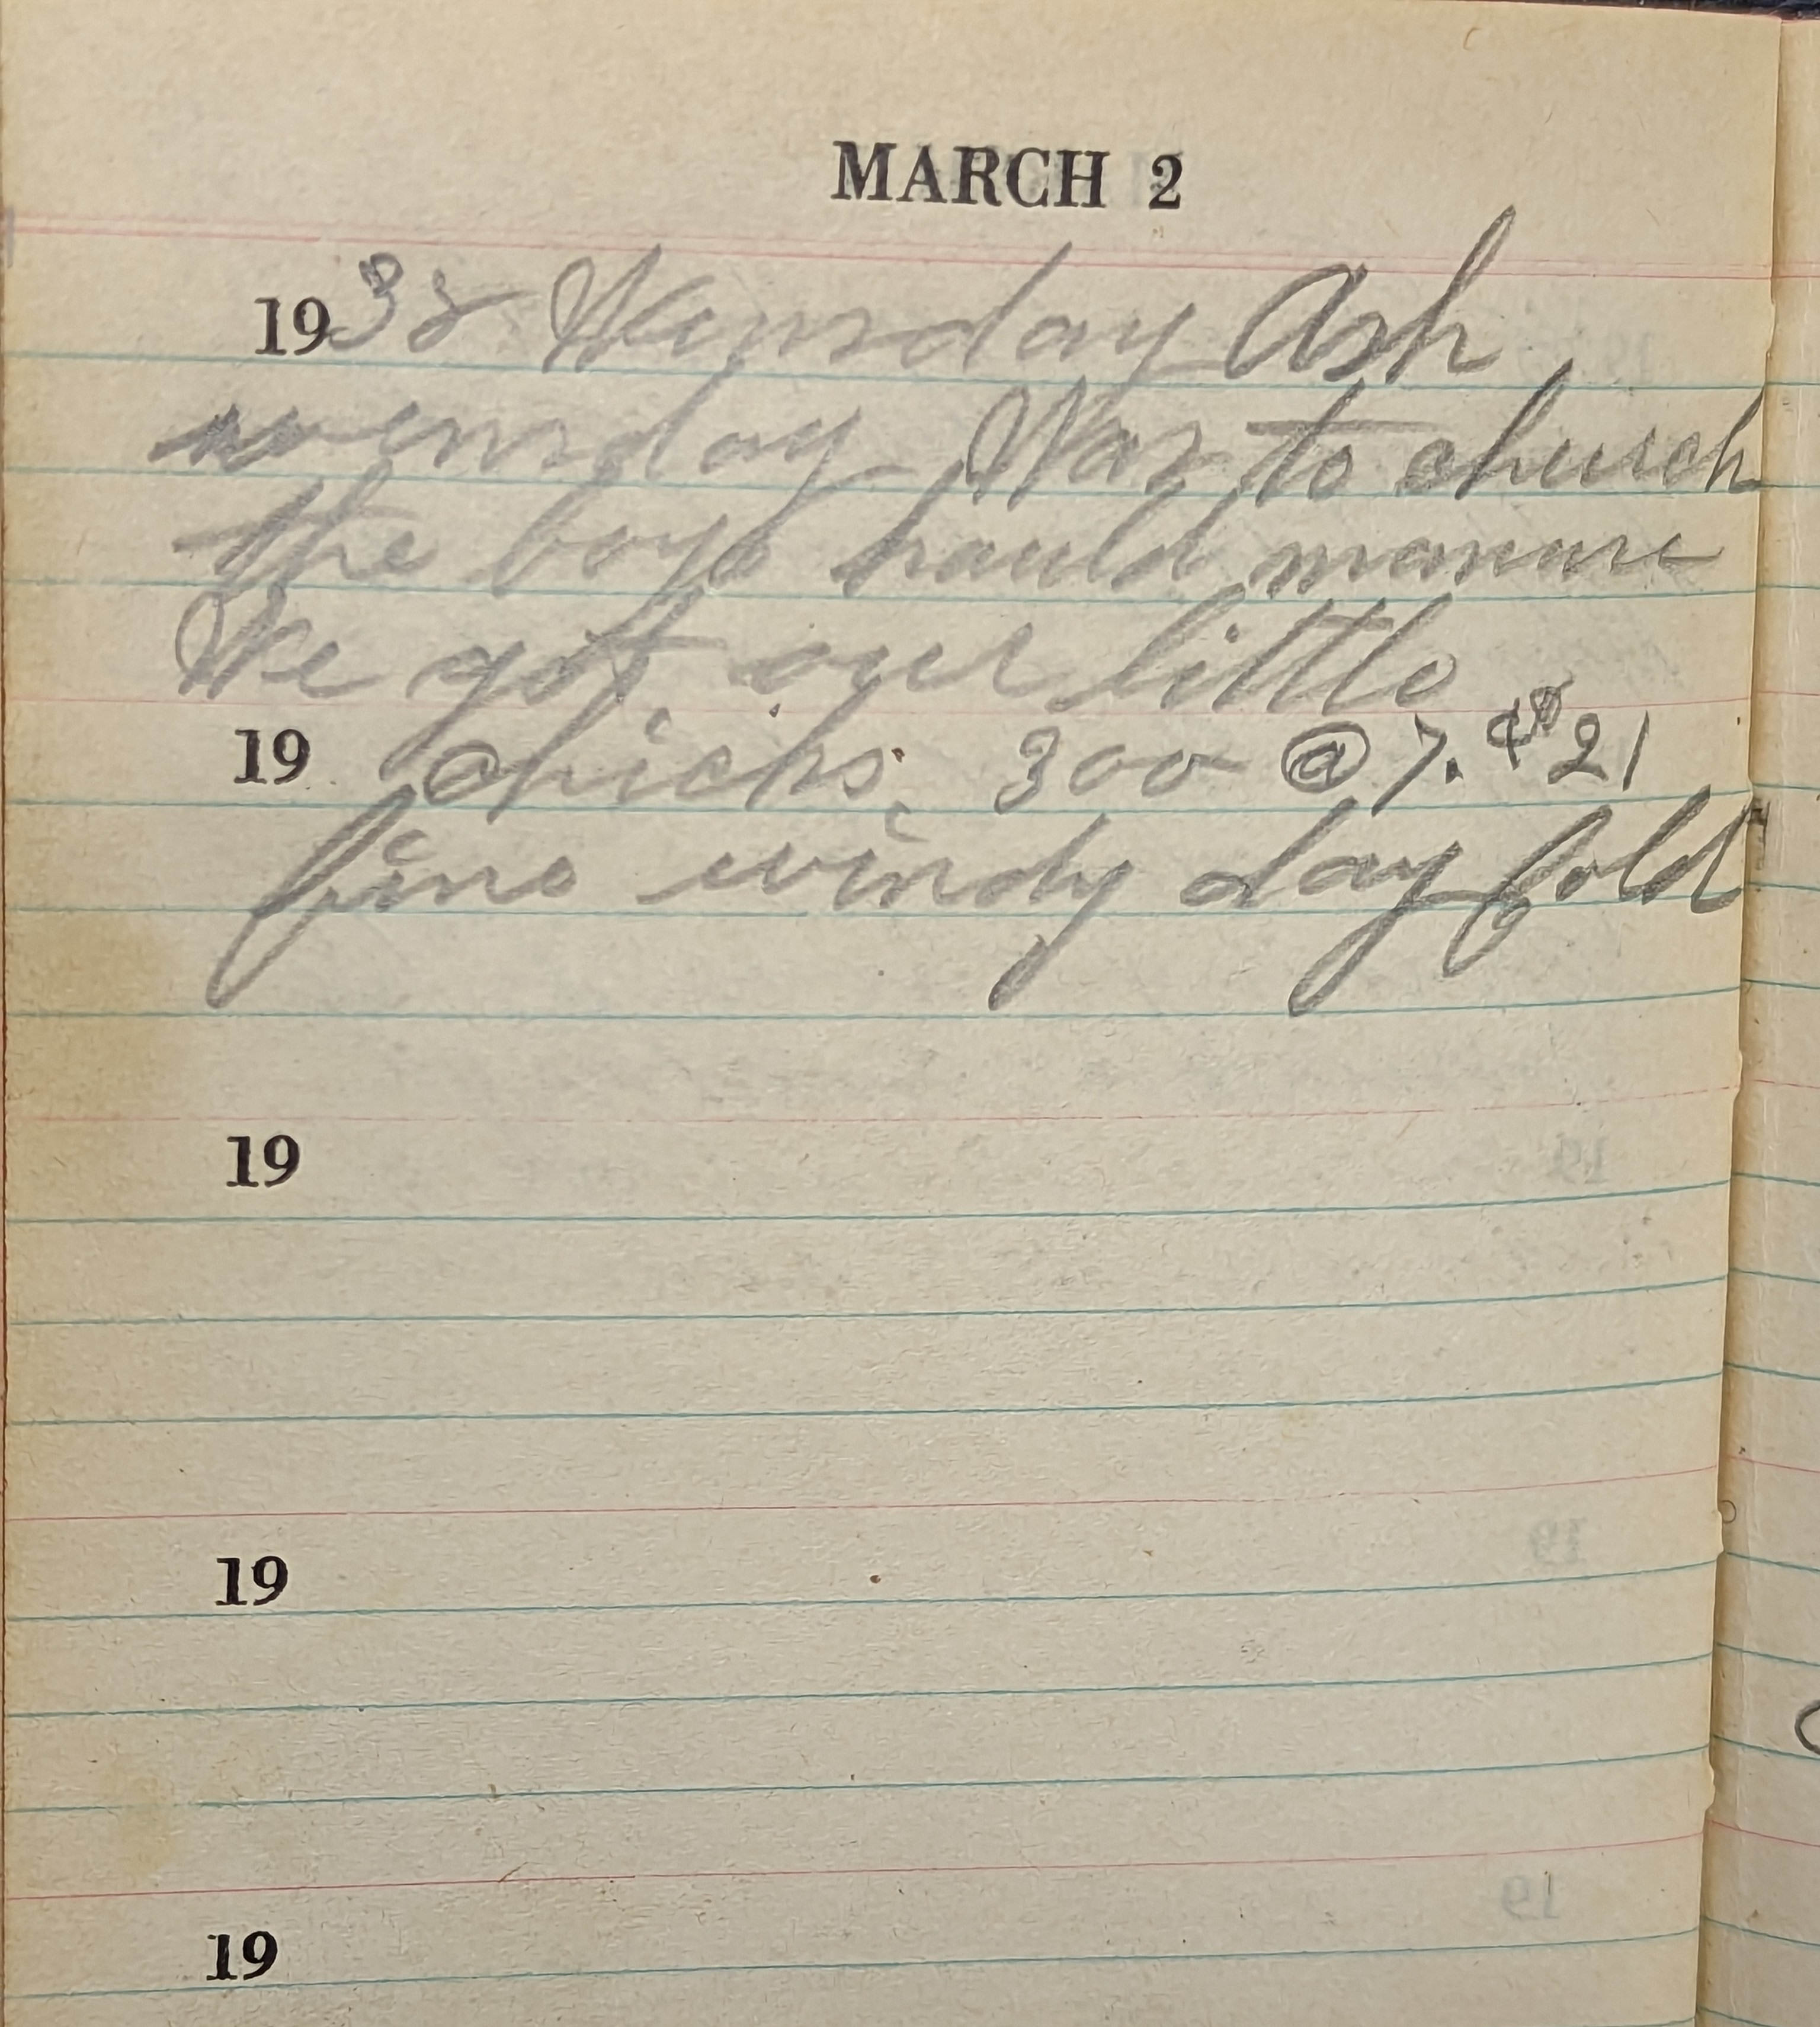 MARCH 2
1938 Wensday Ash
wensday Was to church
the boys hauld manure
We got our little
19 chicks. 300 @ 7. ¢ $21
fine windy day Cold
19
19
19